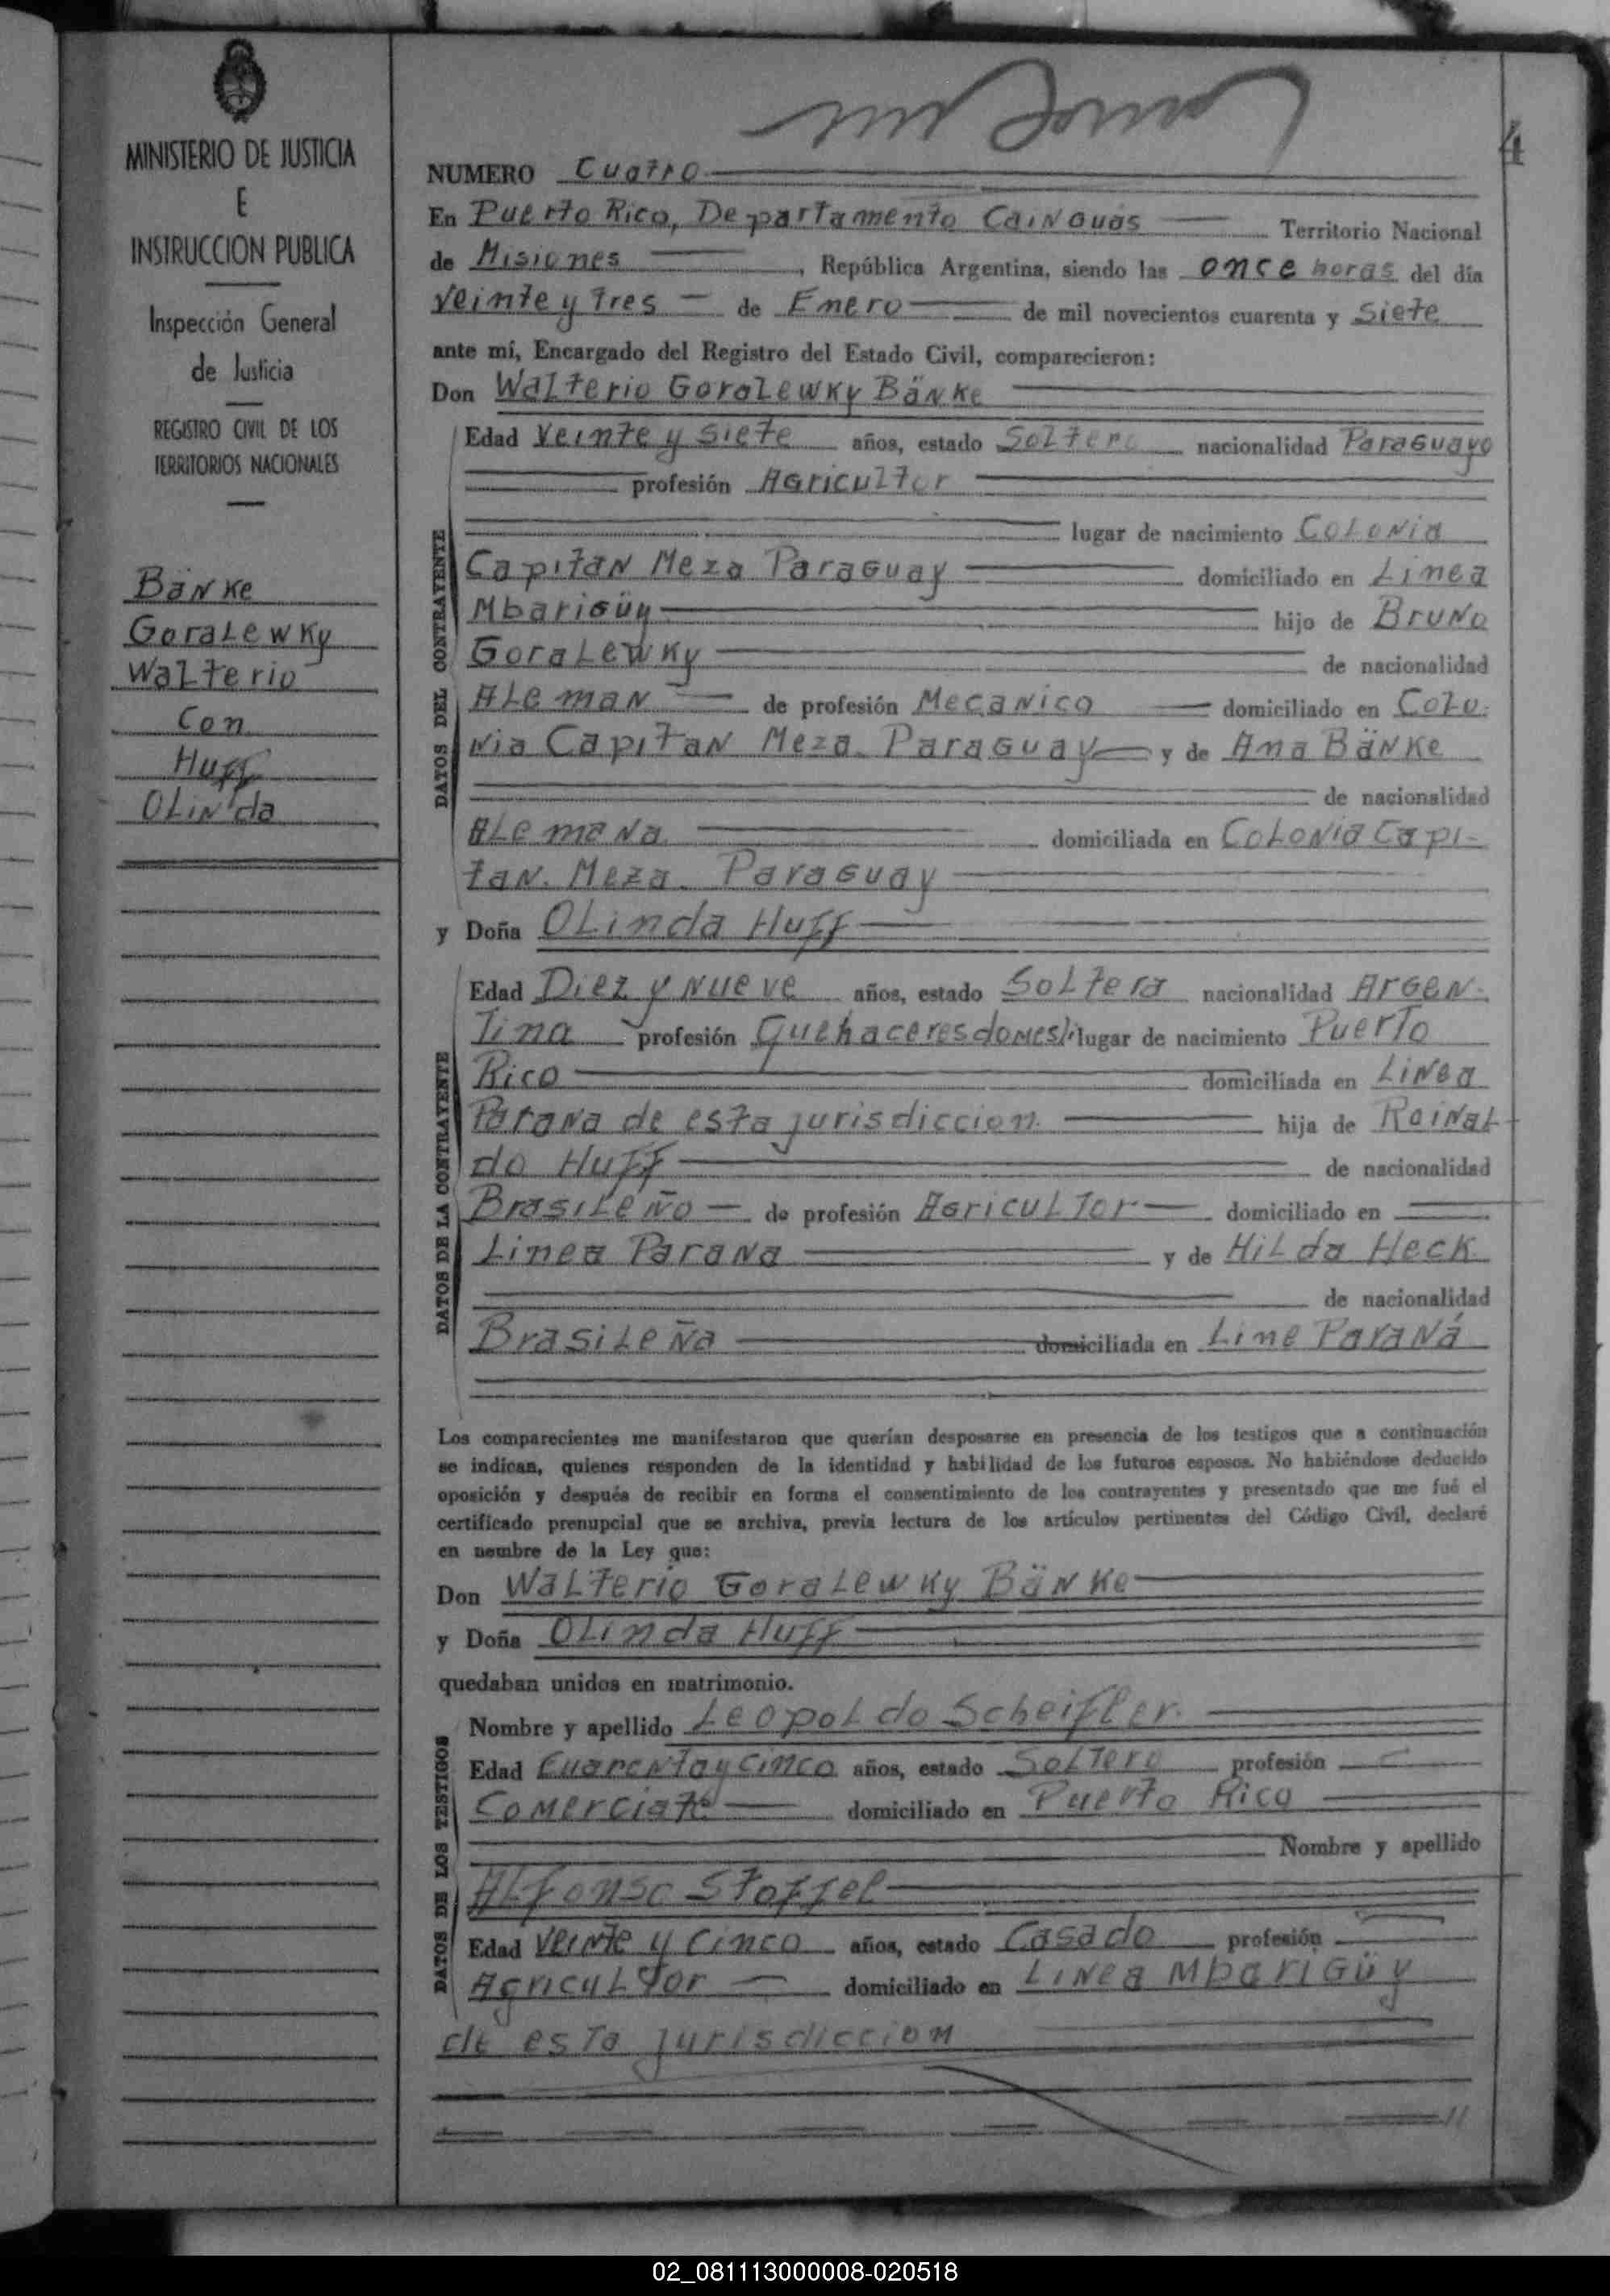 MINISTERIO DE JUSTICIA
E
INSTRUCCION PUBLICA
Inspección General
de Justicia
REGISTRO CIVIL DE LOS
TERRITORIOS NACIONALES
Bänke
Goralewky
Walterio
Con
Huff
Olinda
4
NUMERO Cuatro
En Puerto Rico, Departamento Cainguás Territorio Nacional
de Misiones, República Argentina, siendo las once horas del día
veinte y tres de Enero de mil novecientos cuarenta y siete
ante mí, Encargado del Registro del Estado Civil, comparecieron:
Don Walterio Goralewky Bänke
DATOS DEL CONTRAYENTE
Edad Veinte y siete años, estado Soltero nacionalidad Paraguayo
profesión Agricultor
lugar de nacimiento Colonia
Capitan Meza Paraguay domiciliado en Linea
Mbarigüy hijo de Bruno
Goralewky de nacionalidad
Aleman de profesión Mecanico domiciliado en Colo-
nia Capitan Meza Paraguay y de Ana Bänke
de nacionalidad
Alemana domiciliada en Colonia Capi-
tan. Meza. Paraguay
y Doña Olinda Huff
DATOS DE LA CONTRAYENTE
Edad Diez y nueve años, estado Soltera nacionalidad Argen-
tina profesión Quehaceres domest. lugar de nacimiento Puerto
Rico domiciliada en Linea
Parana de esta jurisdiccion hija de Reinal-
do Huff de nacionalidad
Brasileño de profesión Agricultor domiciliado en
Linea Parana y de Hilda Heck
de nacionalidad
Brasileña domiciliada en Line Paraná
Los comparecientes me manifestaron que querían desposarse en presencia de los testigos que a continuación
se indican, quienes responden de la identidad y habilidad de los futuros esposos. No habiéndose deducido
oposición y después de recibir en forma el consentimiento de los contrayentes y presentado que me fué el
certificado prenupcial que se archiva, previa lectura de los artículos pertinentes del Código Civil, declaré
en nombre de la Ley que:
Don Walterio Goralewky Bänke
y Doña Olinda Huff
quedaban unidos en matrimonio.
DATOS DE LOS TESTIGOS
Nombre y apellido Leopoldo Scheifler
Edad Cuarenta y cinco años, estado Soltero profesión
Comerciate domiciliado en Puerto Rico
Nombre y apellido
Alfonso Stoffel
Edad Veinte y cinco años, estado Casado profesión
Agricultor domiciliado en Linea Mbarigüy
de esta jurisdiccion
02_081113000008-020518